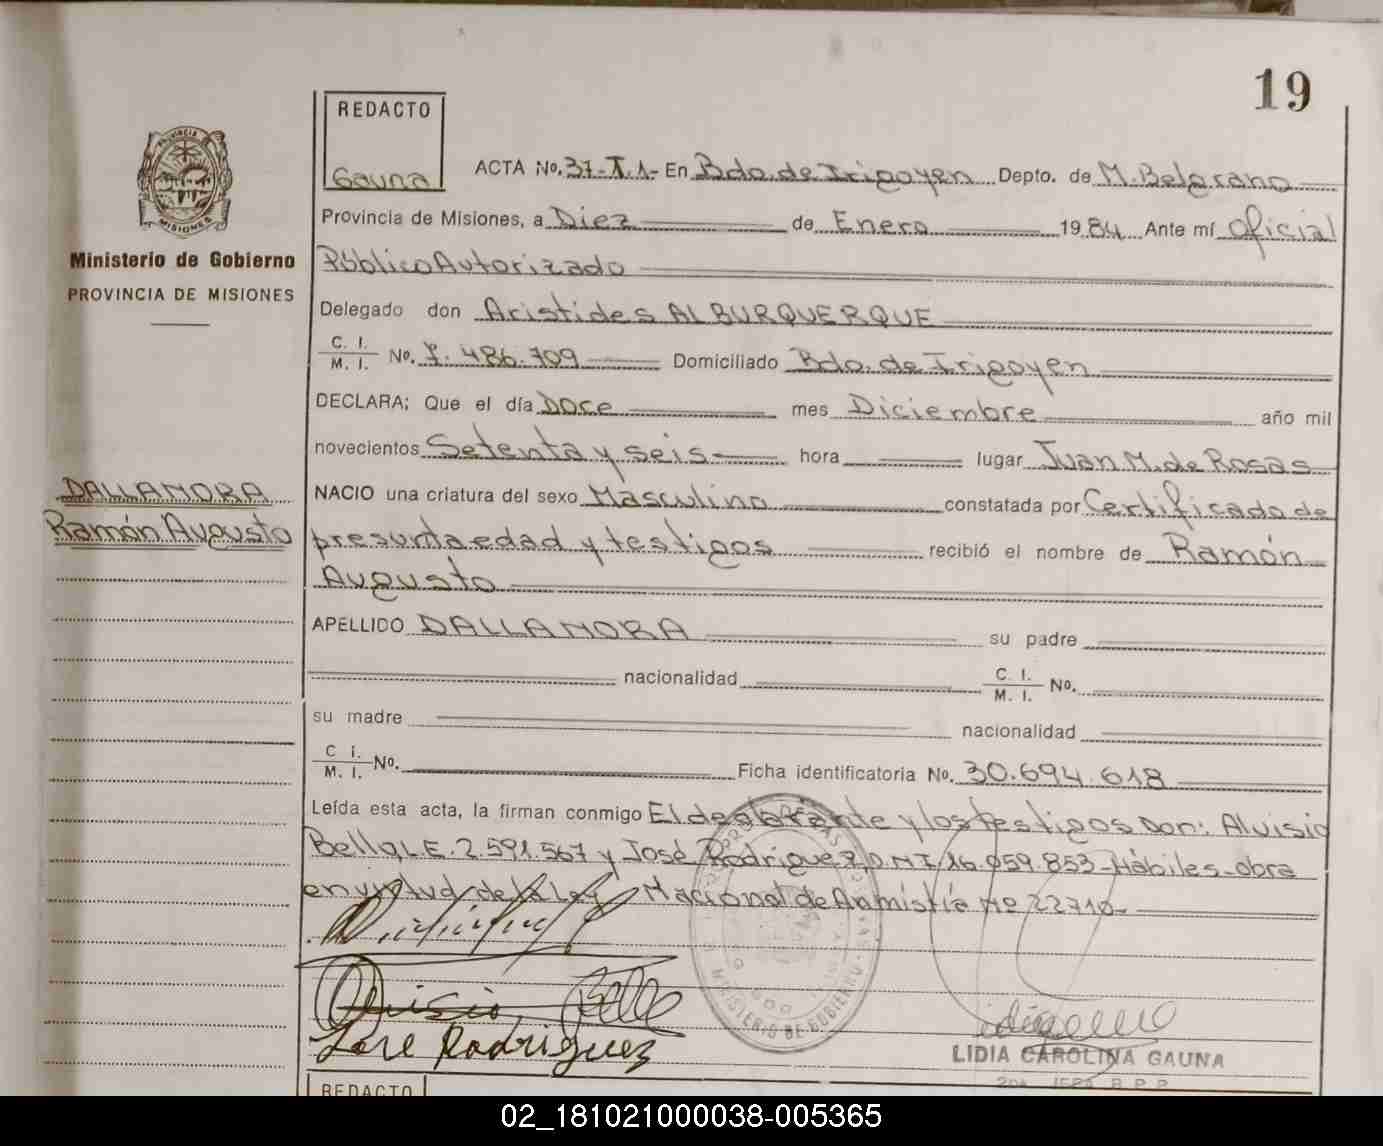 19
REDACTO
Gauna
ACTA No. 37-T.1- En Bdo. de Irigoyen Depto. de M. Belgrano
Provincia de Misiones, a Diez de Enero 1984 Ante mí Oficial
Público Autorizado
Delegado don Aristides ALBURQUERQUE
C. I.
M. I. No. 7.486.709 Domiciliado Bdo. de Irigoyen
DECLARA; Que el día Doce mes Diciembre año mil
novecientos Setenta y seis hora lugar Juan M. de Rosas
NACIO una criatura del sexo Masculino constatada por Certificado de
presunta edad y testigos recibió el nombre de Ramón
Augusto
APELLIDO DALLAMORA su padre
nacionalidad C. I.
M. I. No.
su madre nacionalidad
C. I.
M. I. No. Ficha identificatoria No. 30.694.618
Leída esta acta, la firman conmigo El declarante y los testigos Don: Aluisio
Bella L.E. 2.591.567 y José Rodríguez D.N.I. 16.059.853-Hábiles-obra
en virtud de la Ley Nacional de Amnistía Nº 22710-
Aluisio Bella
Jose Rodriguez
MINISTERIO DE GOBIERNO
LIDIA CAROLINA GAUNA
REDACTO
PROVINCIA
MISIONES
Ministerio de Gobierno
PROVINCIA DE MISIONES
DALLAMORA
Ramón Augusto
02_181021000038-005365